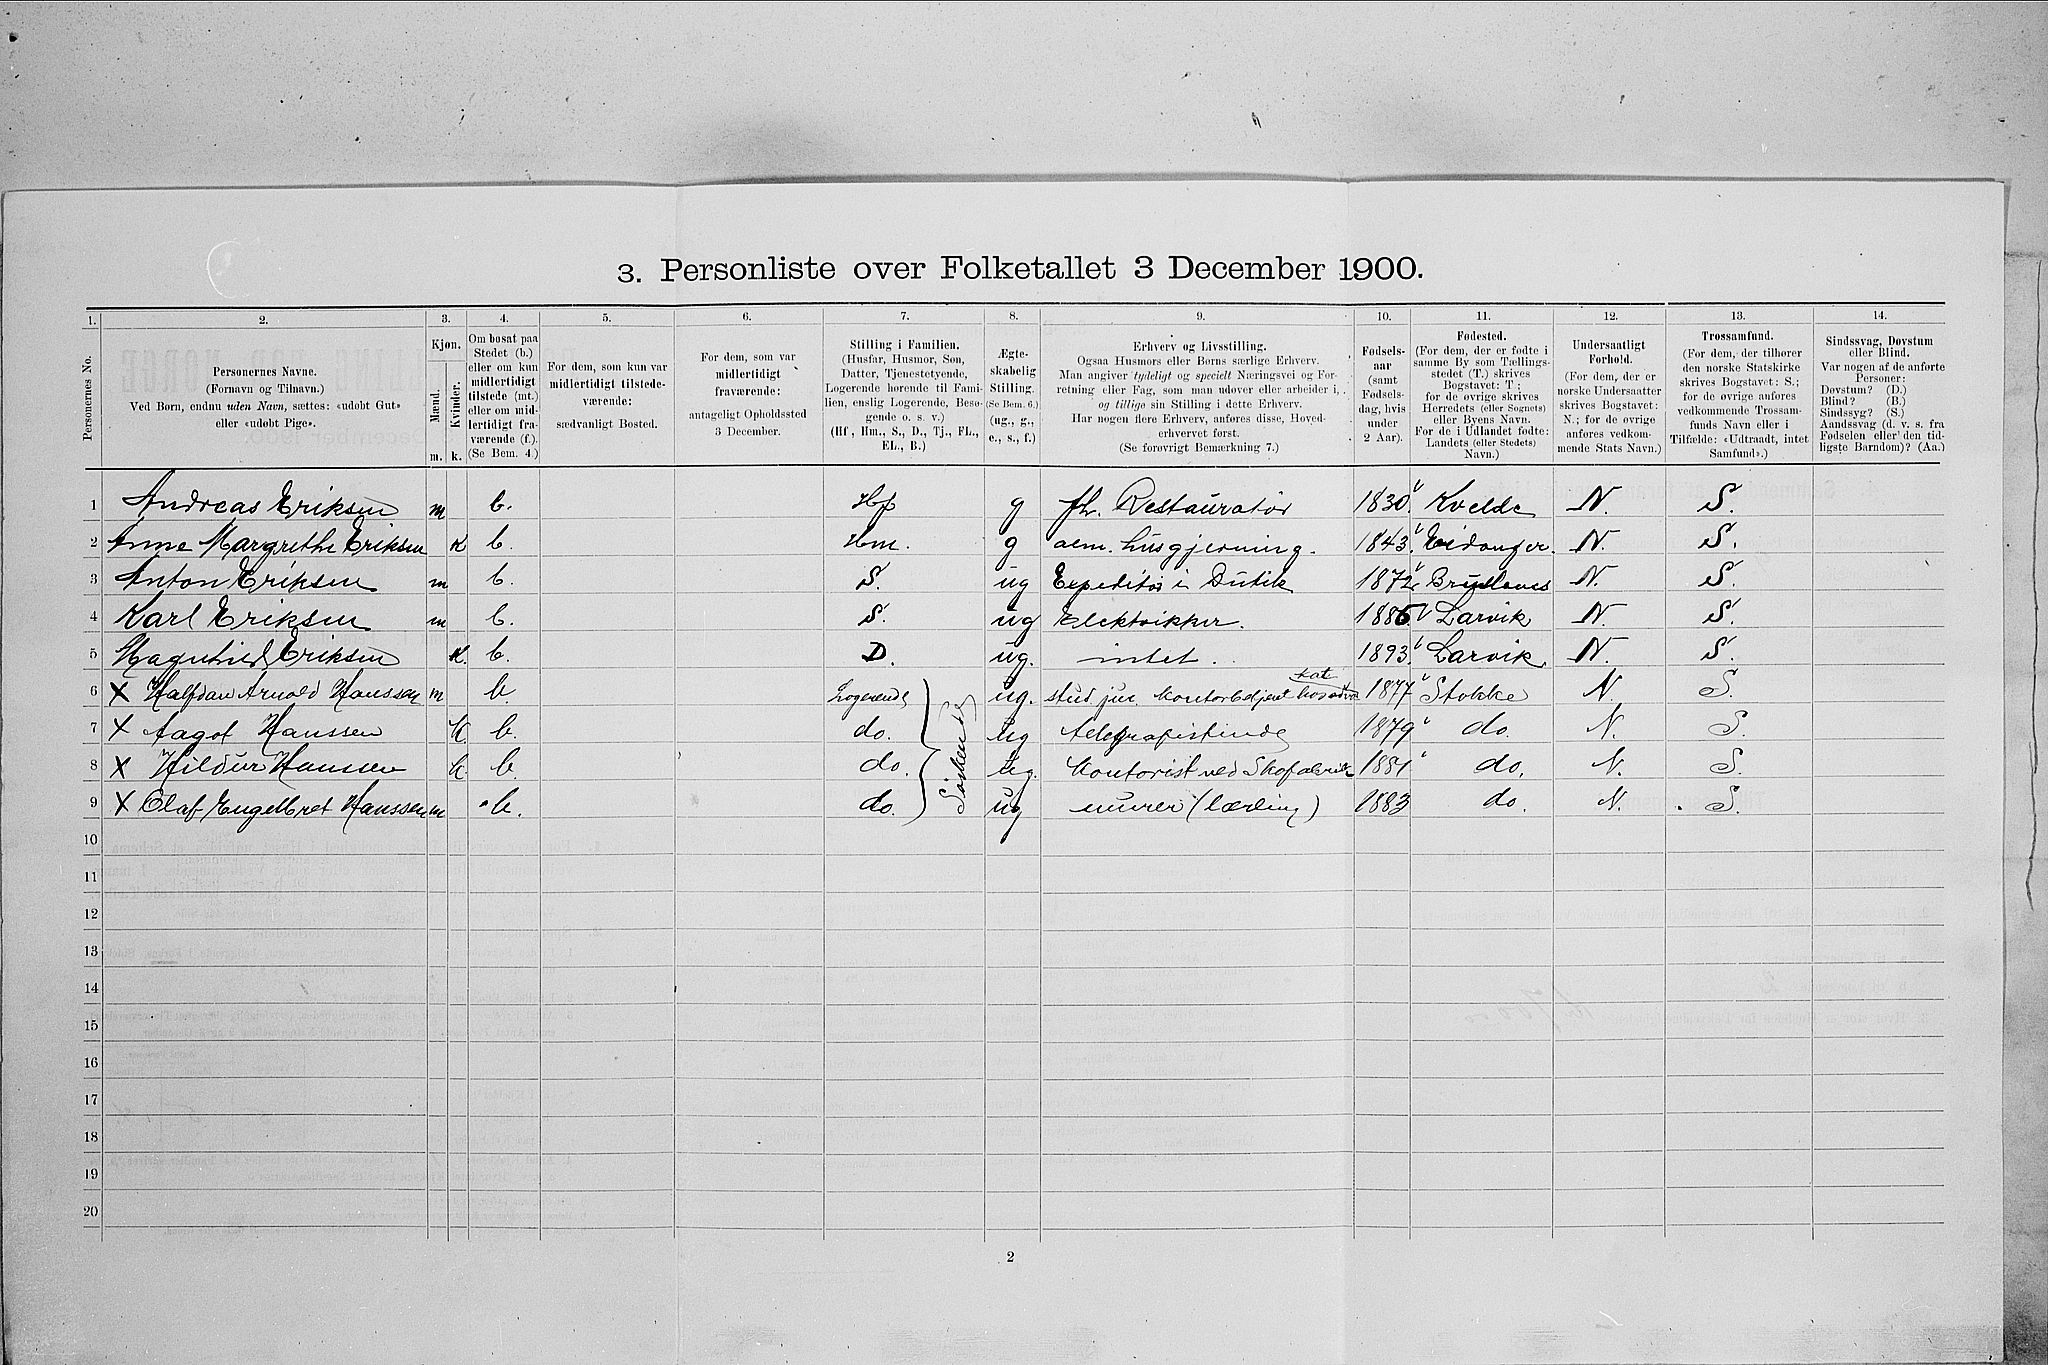 3. Personliste over Folketallet 3 December 1900.
1. 2. 3. 4. 5. 6. 7. 8. 9. 10. 11. 12. 13. 14.
Personernes No.
Personernes Navne.
(Fornavn og Tilnavn.)
Ved Børn, endnu uden Navn, sættes: «udøbt Gut»
eller «udøbt Pige».
Kjøn.
Mænd.
Kvinder.
m. k.
Om bosat paa
Stedet (b.)
eller om kun
midlertidigt
tilstede (mt.)
eller om mid-
lertidigt fra-
værende (f.).
(Se Bem. 4.)
For dem, som kun var
midlertidigt tilstede-
værende:
sædvanligt Bosted.
For dem, som var
midlertidigt
fraværende:
antageligt Opholdssted
3 December.
Stilling i Familien.
(Husfar, Husmor, Søn,
Datter, Tjenestetyende,
Logerende hørende til Fami-
lien, enslig Logerende, Besø-
gende o. s. v.)
(Hf, Hm., S., D., Tj., FL.,
EL., B.)
Ægte-
skabelig
Stilling.
(Se Bem. 6.)
(ug., g.,
e., s., f.)
Erhverv og Livsstilling.
Ogsaa Husmors eller Børns særlige Erhverv.
Man angiver tydeligt og specielt Næringsvei og For-
retning eller Fag, som man udøver eller arbeider i,
og tillige sin Stilling i dette Erhverv.
Har nogen flere Erhverv, anføres disse, Hoved-
erhvervet først.
(Se forøvrigt Bemærkning 7.)
Fødsels-
aar
(samt
Fødsels-
dag, hvis
under
2 Aar).
Fødested.
(For dem, der er fødte i
samme By som Tællings-
stedet (T.) skrives
Bogstavet: T;
for de øvrige skrives
Herredets (eller Sognets)
eller Byens Navn.
For de i Udlandet fødte:
Landets (eller Stedets)
Navn.)
Undersaatligt
Forhold.
(For dem, der er
norske Undersaatter
skrives Bogstavet:
N.; for de øvrige
anføres vedkom-
mende Stats Navn.)
Trossamfund.
(For dem, der tilhører
den norske Statskirke
skrives Bogstavet: S.;
for de øvrige anføres
vedkommende Trossam-
funds Navn eller i
Tilfælde: «Udtraadt, intet
Samfund».)
Sindssvag, Døvstum
eller Blind.
Var nogen af de anførte
Personer:
Døvstum? (D.)
Blind? (B.)
Sindssyg? (S.)
Aandssvag (d. v. s. fra
Fødselen eller den tid-
ligste Barndom)? (Aa.)
1 Andreas Eriksen m b. Hf g fh. Restauratør 1830 Kvelde N. S.
2 Anne Margrethe Eriksen K b. Hm. g alm. husgjerning. 1843 Eidanger. N. S.
3 Anton Eriksen m b. S. ug Expeditør i Butik 1872 N. S.
4 Karl Eriksen m b. S. ug Elektrikker. 1886 Larvik N. S.
5 Magnhild Eriksen K. b. D. ug. intet. 1893 Larvik N. S.
6 X Halfdan Arnold Hanssen m b. Logerende ug. stud. jur. Kontorbetjent 1877 Stokke N. S.
7 X Aagot Hanssen K b. do. ug Telegrafistinde 1879 do. N. S.
8 X Hildur Hanssen K. b. do. ug. Kontorist ved Skofabrik 1881 do. N. S.
9 X Olaf Engelbret Hanssen m b. do. ug murer (lærling) 1883 do. N. S.
Søskende
10
11
12
13
14
15
16
17
18
19
20
2